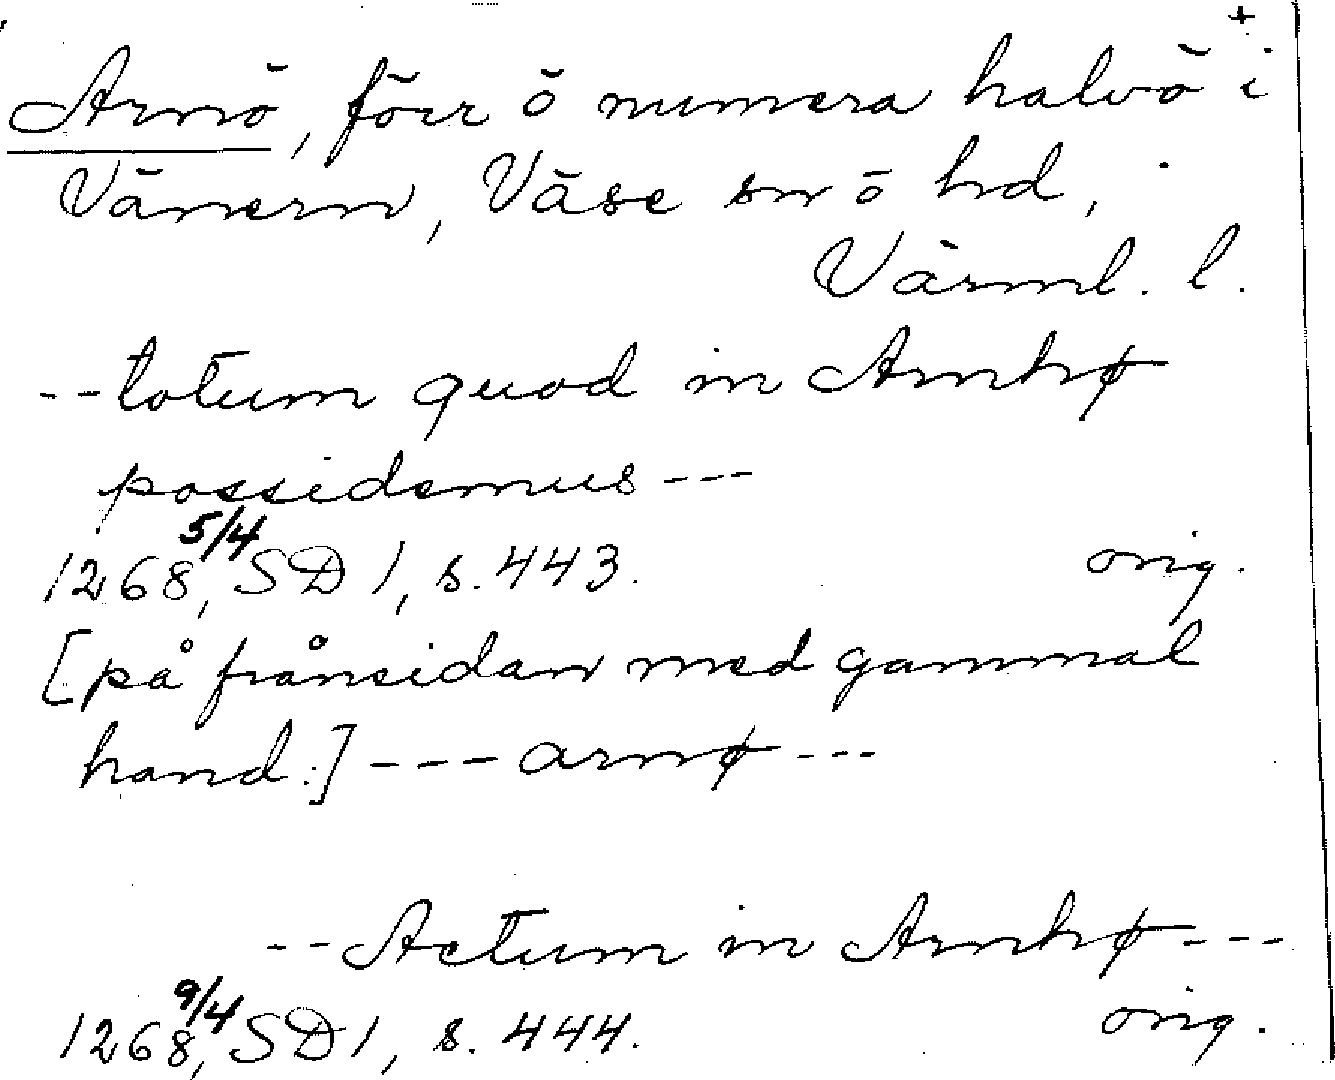 +
Arnö, förr ö numera halvö i
Vänern, Väse sn o hd,
Värml. l.
--totum quod in Arnhø
possidemus---
1268 5/4, SD 1, s. 443. orig.
[på frånsidan med gammal
hand:]---arnø---
--Actum in Arnhø---
1268 9/4, SD 1, s. 444. orig.